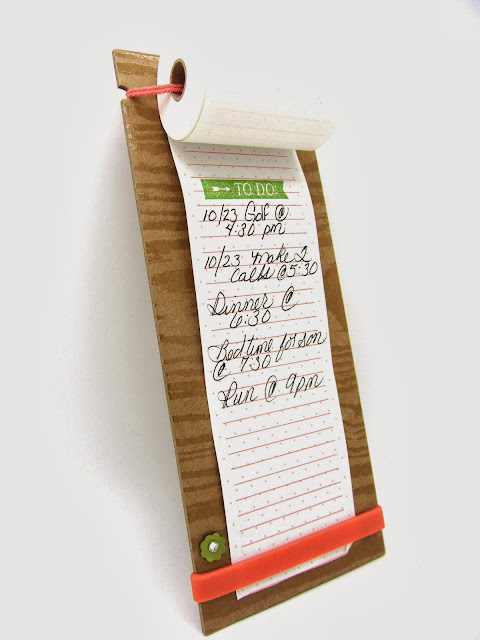 TO DO:
10/23 Golf @
4:30 pm
10/23 make 2
calls @ 5:30
Dinner @
6:30
Bedtime for son
@ 7:30
Run @ 9pm